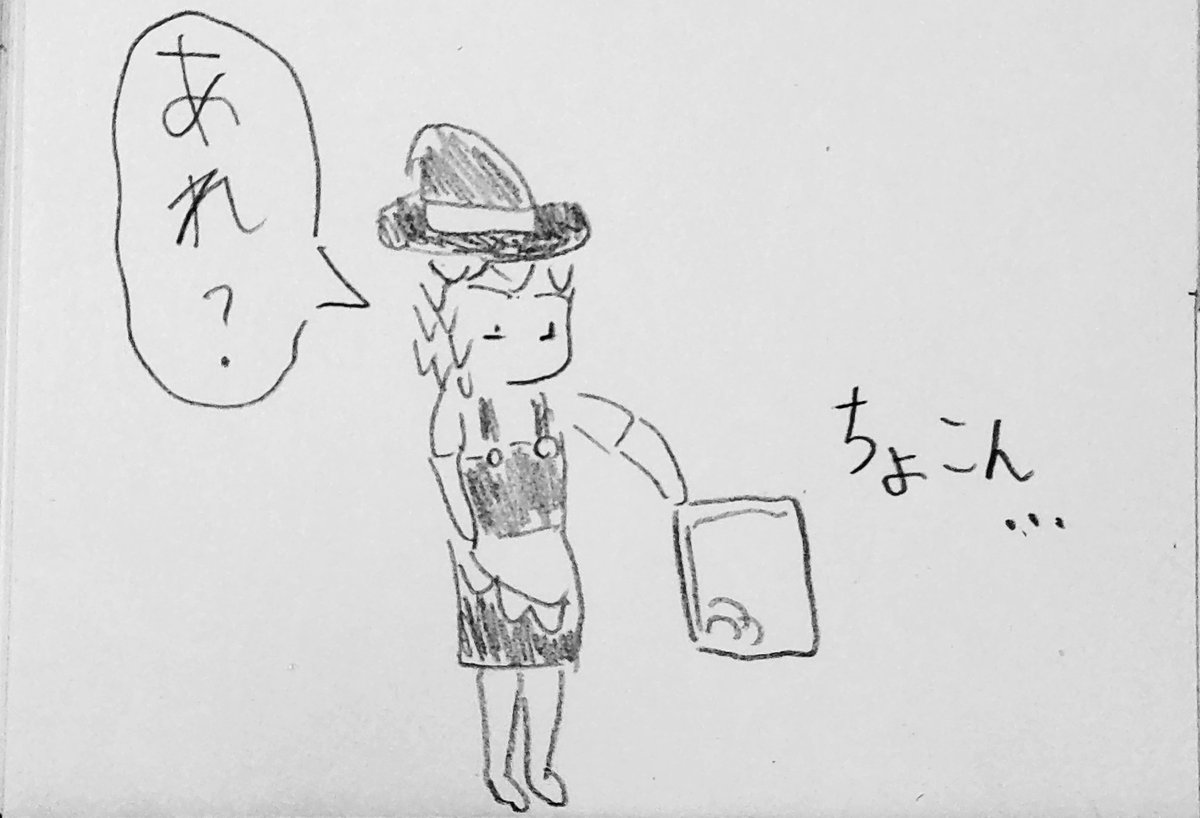 あれ?
ちょこん
...